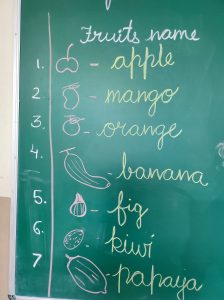 Fruits name
1. - apple
2. - mango
3. - orange
4. - banana
5. - fig
6. - kiwi
7 - papaya